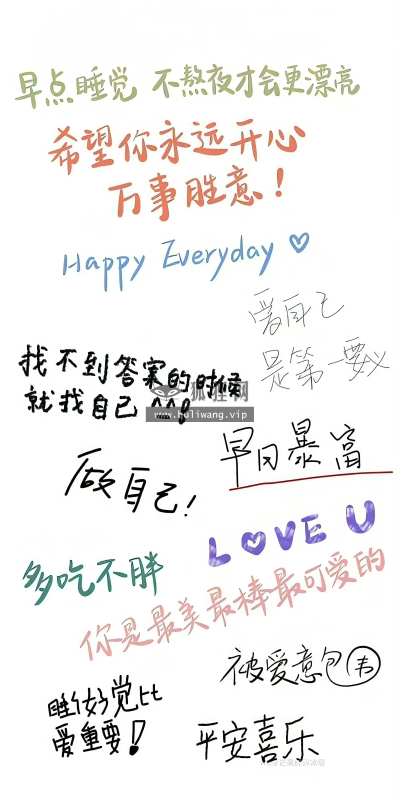 早点睡觉 不熬夜才会更漂亮
希望你永远开心
万事胜意！
Happy Everyday ♡
爱自己
是第一要义
找不到答案的时候
就找自己
狐狸网
www.huliwang.vip
早日暴富
做自己！
LOVE U
多吃不胖
你是最美最棒最可爱的
被爱意包围
睡好觉比
爱重要！
平安喜乐